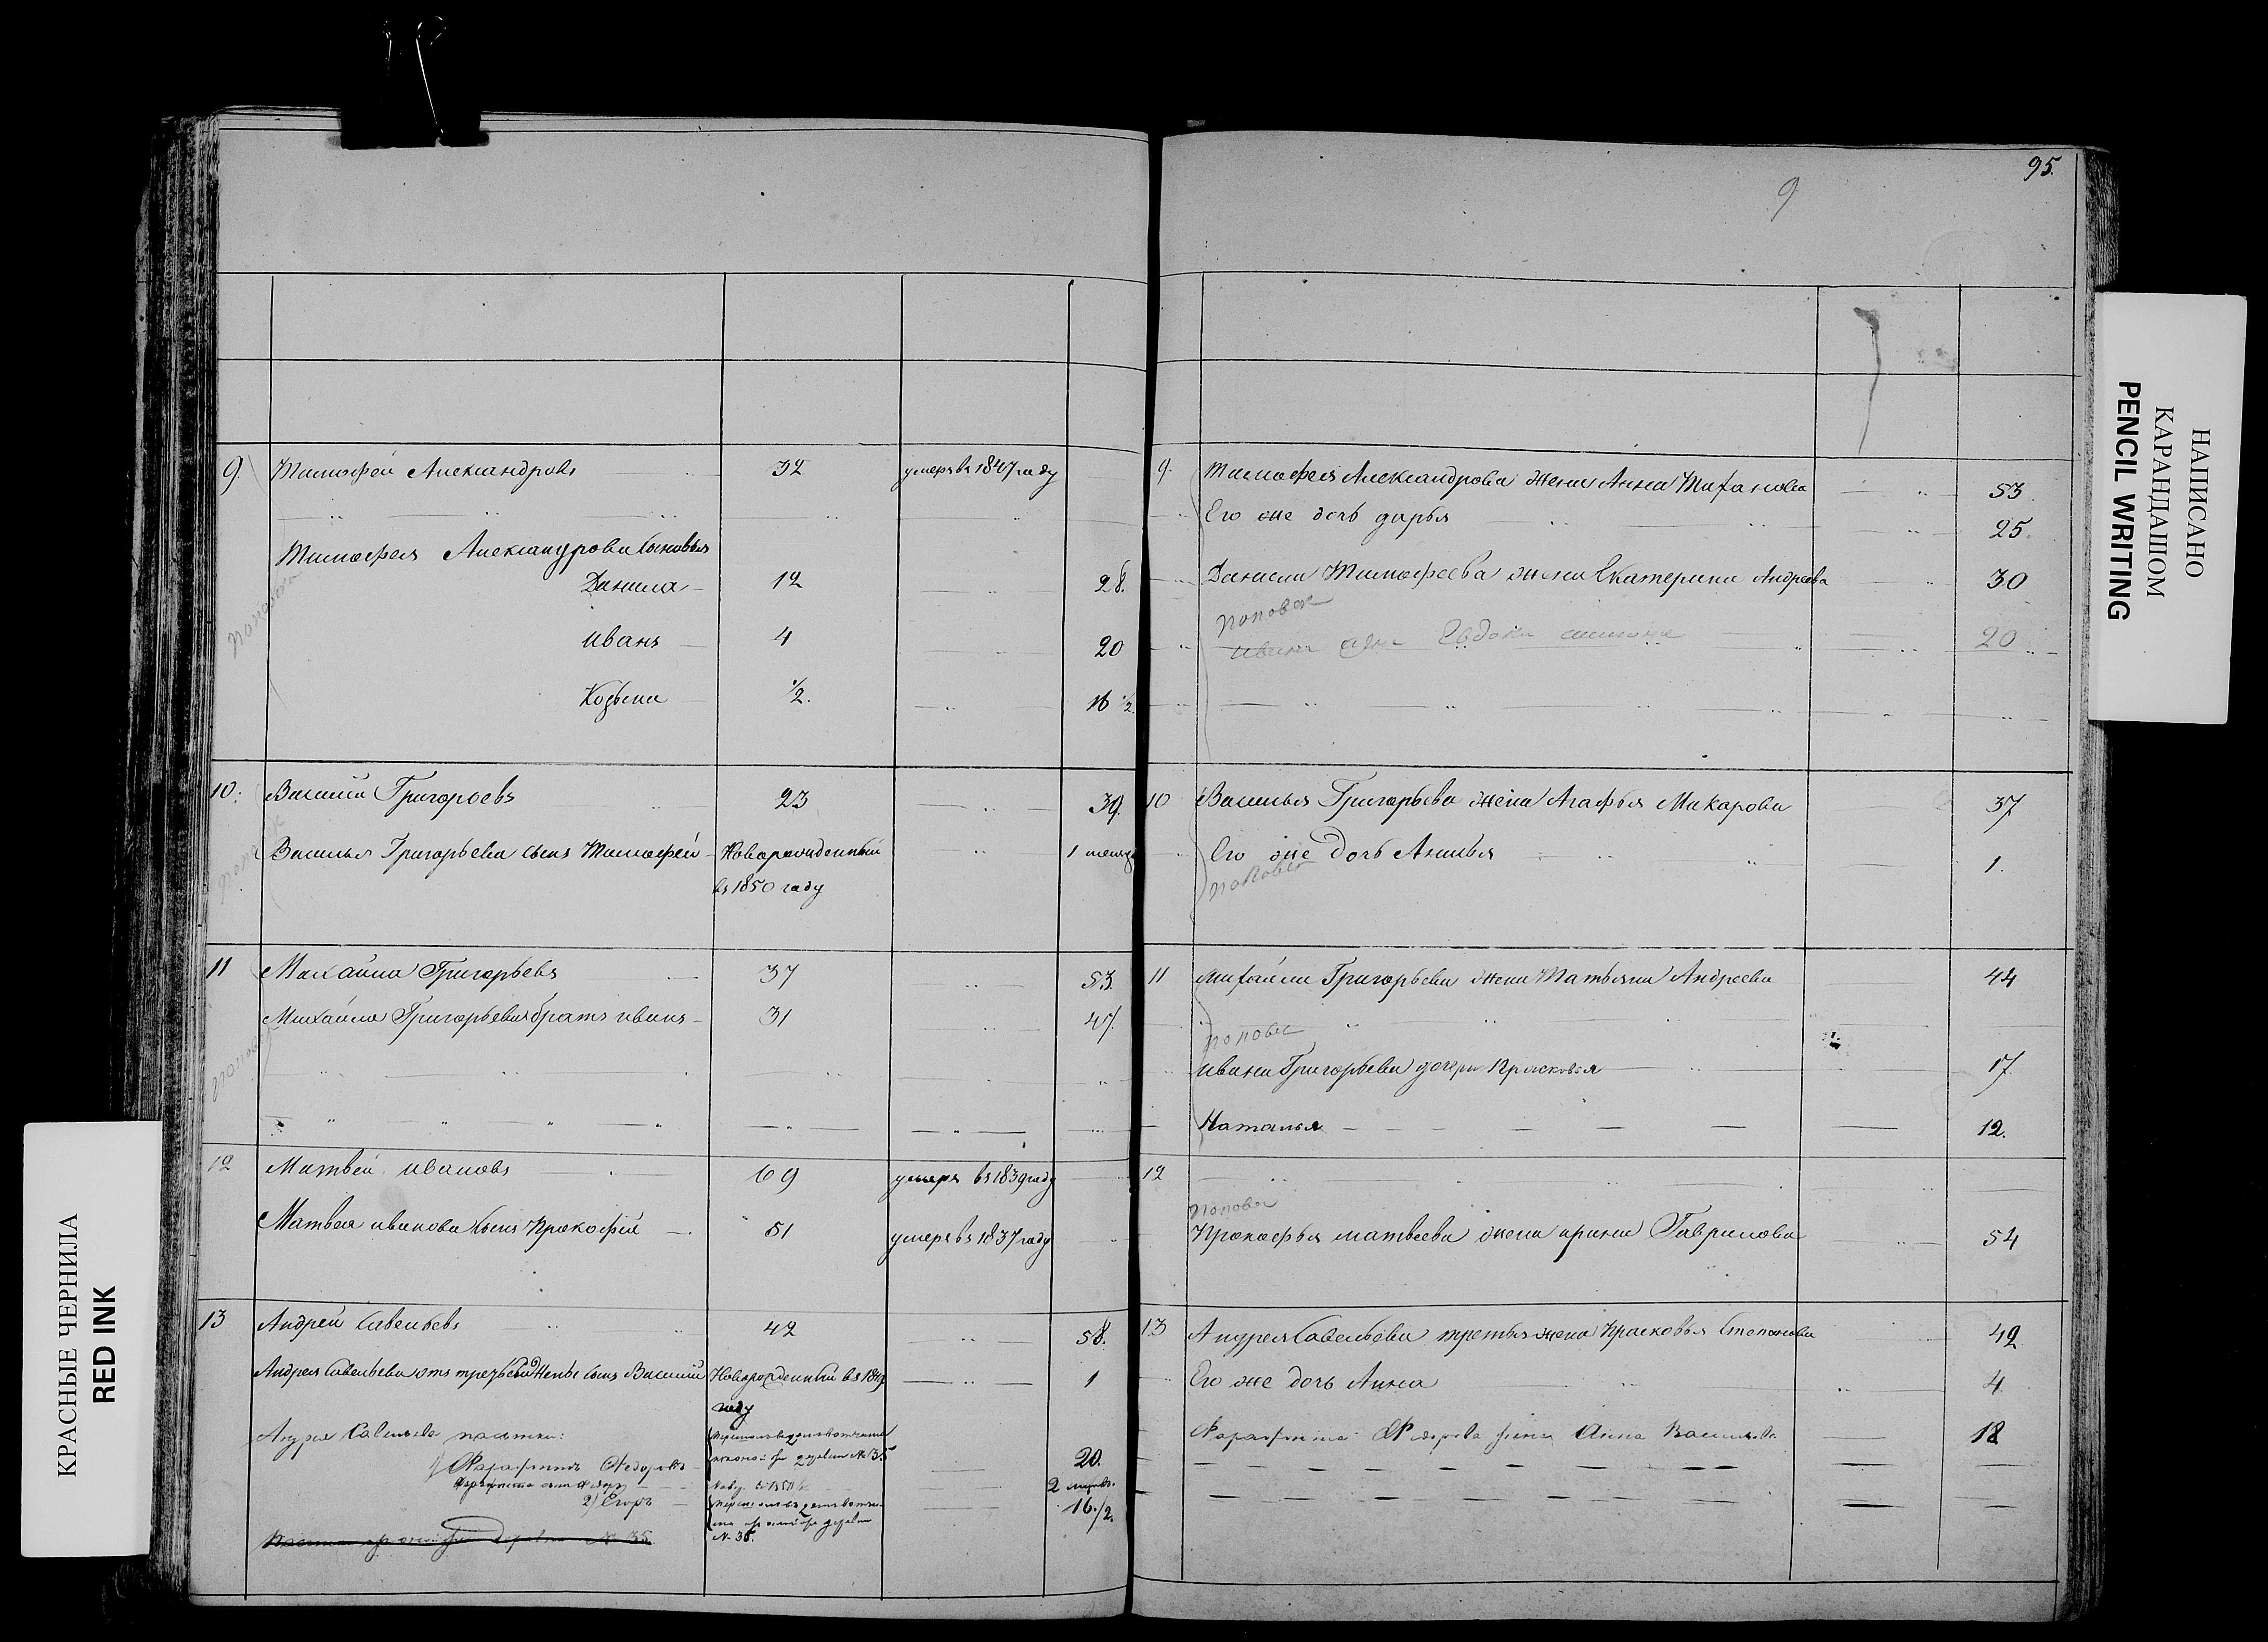 95.
9
9. Тимофей Александровъ 32 умеръ въ 1847 году
Тимофея Александрова сыновья
Данила 12 28.
Иванъ 4 20
Козьма 1/2. 16 1/2.
Попова
10. Василий Григорьевъ 23 39.
Василья Григорьева сынъ Тимофей Новорожденный 1 месяц
въ 1850 году
11 Михайла Григорьевъ 37 53.
Михайла Григорьева братъ иванъ 31 47.
12 Матвей ивановъ 69 умеръ въ 1839 году
Матвея иванова сынъ Прокофий 51 умеръ въ 1837 году
13 Андрей Савельевъ 42 58.
Андрея Савельева отъ третьей жены сынъ Василий Новорожденный въ 1849 1
году
Андрея Савельева пасынки:
1) Федоровъ 20.
2) Егоръ 16 1/2.
№ 35.
9. Тимофея Александрова жена Анна 53.
Его же дочь дарья 25.
Данилы Тимофеева жена Екатерина Андреева 30
Поповы
Ивана жена Евдокия 20
10 Василья Григорьева жена Агафья Макарова 37
Его же дочь 1.
поповы
11 михайлы Григорьева жена Татьяна Андреева 44
поповы
ивана Григорьева дочери Прасковья 17
Наталья 12.
12
поповы
Прокофья матвеева жена ирина Гаврилова 54
13 Андрея Савельева третья жена Прасковья Степанова 42
Его же дочь Анна 4.
Федорова жена Анна Васильева 18
КРАСНЫЕ ЧЕРНИЛА
RED INK
НАПИСАНО
КАРАНДАШОМ
PENCIL WRITING